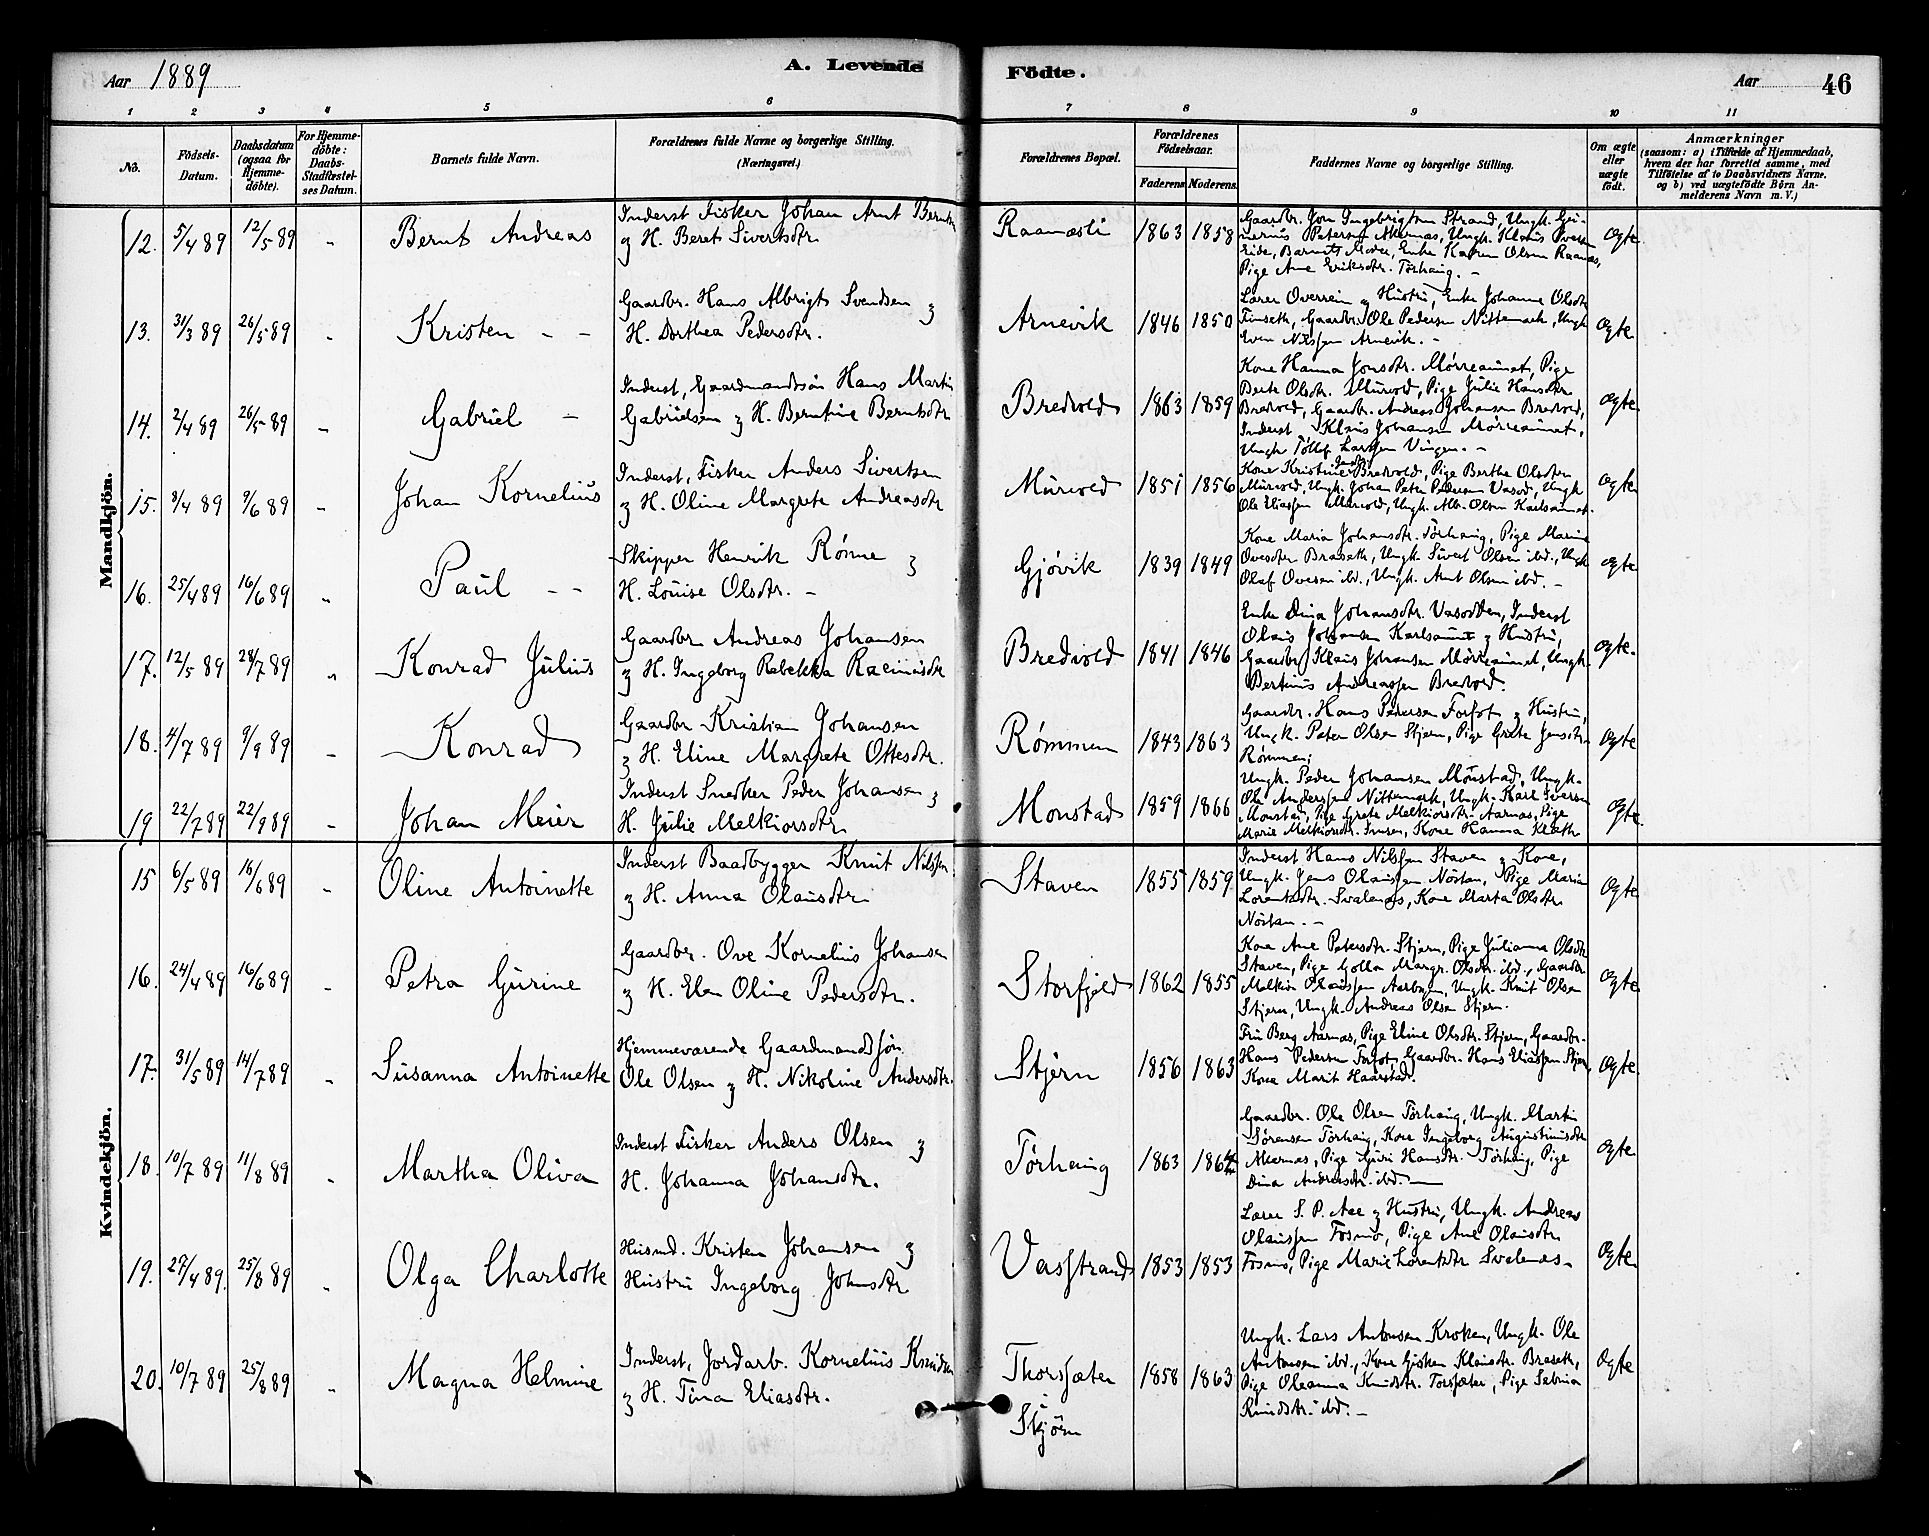 Aar 1889
A. Levende
Födte.
Aar 46
1 2 3 4 5 6 7 8 9 10 11
No.
Födsels-
Datum.
Daabsdatum
(ogsaa for
Hjemme-
döbte).
For Hjemme-
döbte:
Daabs-
Stadfæstel-
ses Datum.
Barnets fulde Navn.
Forældrenes fulde Navne og borgerlige Stilling.
(Næringsvei.)
Forældrenes Bopæl.
Forældrenes
Födselsaar.
Faderens Moderens.
Faddernes Navne og borgerlige Stilling.
Om ægte
eller
uægte
födt.
Anmærkninger
(saasom: a) i Tilfælde af Hjemmedaab,
hvem der har forrettet samme, med
Tilföielse af to Daabsvidners Navne.
og b) ved uægtefödte Börn An-
melderens Navn m. V.)
Mandkjön.
12. 5/4 89 12/5 89 " Bernt Andreas
Inderst Fisker Johan Arnt Berntsen
& H. Beret Sivertsdtr
Raanæsli 1863 1858
Gaardbr. Jon Ingebrigtsen Strand, Ungk.
Petersen Akernæs, Ungk. Klaus
Eide, Barnets Moder, Enke Karen Olsen Raanæs,
Pige Ane Eriksdtr. Törhaug. -
Ægte
13. 31/3 89 26/5 89 " Kristen - -
Gaardbr. Hans Albrigt Svendsen &
H. Dorthea Pedersdtr.
Arnevik 1846 1850
Lærer Overrein & Hustru, Enke Johanna Olsdtr
Finseth, Gaardbr. Ole Pedersen Nittemark, Ungk
Even Nilssen Arnevik. -
Ægte
14. 2/4 89 26/5 89 " Gabriel -
Inderst, Gaardmandssön Hans Martin
Gabrielsen & H. Berntine Berntsdtr
Bredvold 1863 1859
Kone Hanna Jonsdtr. Mörreaunet, Pige
Berte Olsdtr. Murvold, Pige Julie Hansdtr
Bredvold, Gaardbr. Andreas Johansen Bredvold,
Inderst Klaus Johansen Mörreaunet,
Ungk Tollef Larssen Vingen. -
Ægte
15. 8/4 89 9/6 89 " Johan Kornelius
Inderst, Fisker Anders Sivertsen
& H. Oline Margrete Andreasdtr
Murvold 1851 1856
Kone Kristine Bredvold, Pige Berthe Olsdtr
Murvold, Ungk. Johan Peter Pedersen Vasöd, Ungk
Ole Eliassen Murvold, Ungk. Alb. Olsen Karlsaunet.
Ægte
16. 25/4 89 16/6 89 " Paul - -
Skipper Henrik Rönne &
H. Louise Olsdtr. -
Gjövik 1839 1849
Kone Maria Johansdtr. Törhaug, Pige Marine
Ovesdtr Braseth, Ungk. Sivert Olsen ibd., Ungk
Olaf Ovesen ibd., Ungk. Arnt Olsen ibd. -
Ægte
17. 12/5 89 28/7 89 " Konrad Julius
Gaardbr Andreas Johansen
& H. Ingeborg Rebekka Rasmusdtr
Bredvold 1841 1846
Enke Dina Johansdtr. Vasödden, Inderst
Olaus Johansen Karlsaunet & Hustru,
Gaardbr Klaus Johansen Mörreaunet, Ungk.
Bertinus Andreassen Bredvold.
Ægte.
18. 4/7 89 9/9 89 " Konrad
Gaardbr Kristian Johansen
& H. Eline Margrete Ottesdtr.
Römmen 1843 1863
Gaardbr. Hans Pedersen Forfot & Hustru,
Ungk. Peter Olsen Stjern, Pige Grete Jensdtr.
Römmen;
Ægte
19 22/7 89 22/9 89 " Johan Meier
Inderst Snedker Peder Johansen &
H. Julie Melkiorsdtr
Monstad 1859 1866
Ungk. Peder Johansen Monstad, Ungk.
Ole Anderssen Nittemark, Ungk. Karl Iversen
Monstad, Pige Grete Melkiorsdtr. Aarnæs, Pige
Marie Melkiorsdtr. , Kone Hanna
Ægte.
Kvindekjön.
15 6/5 89 16/6 89 " Oline Antoinette
Inderst Baadbygger Knut Nilssen
& H. Anna Olausdtr
Staven 1855 1859
Inderst Hans Nilssen Staven & Kone,
Ungk. Jens Olaussen Nöstan, Pige Maria
Lorentsdtr. Svalenæs, Kone Marta Olsdtr
Nöstan. -
Ægte
16. 24/4 89 16/6 89 " Petra Gurine
Gaardbr. Ove Kornelius Johansen
& H. Elen Oline Pedersdtr.
Storfjeld 1862 1855
Kone Ane Petersdtr. Stjern, Pige Julianna Olsdtr
Staven, Pige Golla Margr. Olsdtr. ibd., Gaardbr
Melkior Olaussen Aarbogen, Ungk. Knut Olsen
Stjern, Ungk. Andreas Olsen Stjern.
Ægte
17. 31/5 89 14/7 89 " Susanna Antoinette
Hjemmeværende Gaardmandssön
Ole Olsen & H. Nikoline Andersdtr.
Stjern 1856 1863
Fru Berg Aarnæs, Pige Eline Olsdtr. Stjern, Gaardbr.
Hans Pedersen Forfot, Gaardbr. Hans Eliassen Stjern,
Kone Marit Haarstad.
Ægte
18. 10/7 89 11/8 89 " Martha Oliva
Inderst Fisker Anders Olsen &
H. Johanna Johansdtr.
Törhaug 1863 1864
Gaardbr. Ole Olsen Törhaug, Ungk. Martin
Sörensen Törhaug, Kone Ingeborg Augustinusdtr
Akernæs, Pige Guri Hansdtr. Törhaug, Pige
Dina Andersdtr. ibd. -
Ægte
19. 27/4 89. 25/8 89 " Olga Charlotte
Husmd. Kristen Johansen &
Hustru Ingeborg Johnsdtr
Vasstrand 1853 1853
Lærer S. P. Aae & Hustru, Ungk. Andreas
Olaussen Fosmo, Pige Ane Olausdtr
Fosmo, Pige Marie Lorentsdtr Svalenæs -
Ægte
20. 10/7 89 25/8 89 " Magna Helmine
Inderst, Jordarb. Kornelius Knudsen
& H. Tina Eliasdtr.
Thorsæter
i
Skjörn
1858 1863
Ungk. Lars Antonsen Kroken, Ungk. Ole
Antonsen ibd., Kone Gjöken Klausdtr. Braseth,
Pige Oleanna Knudsdtr. Torsæter, Pige Sabina
Knudsdtr. ibd. -
Ægte